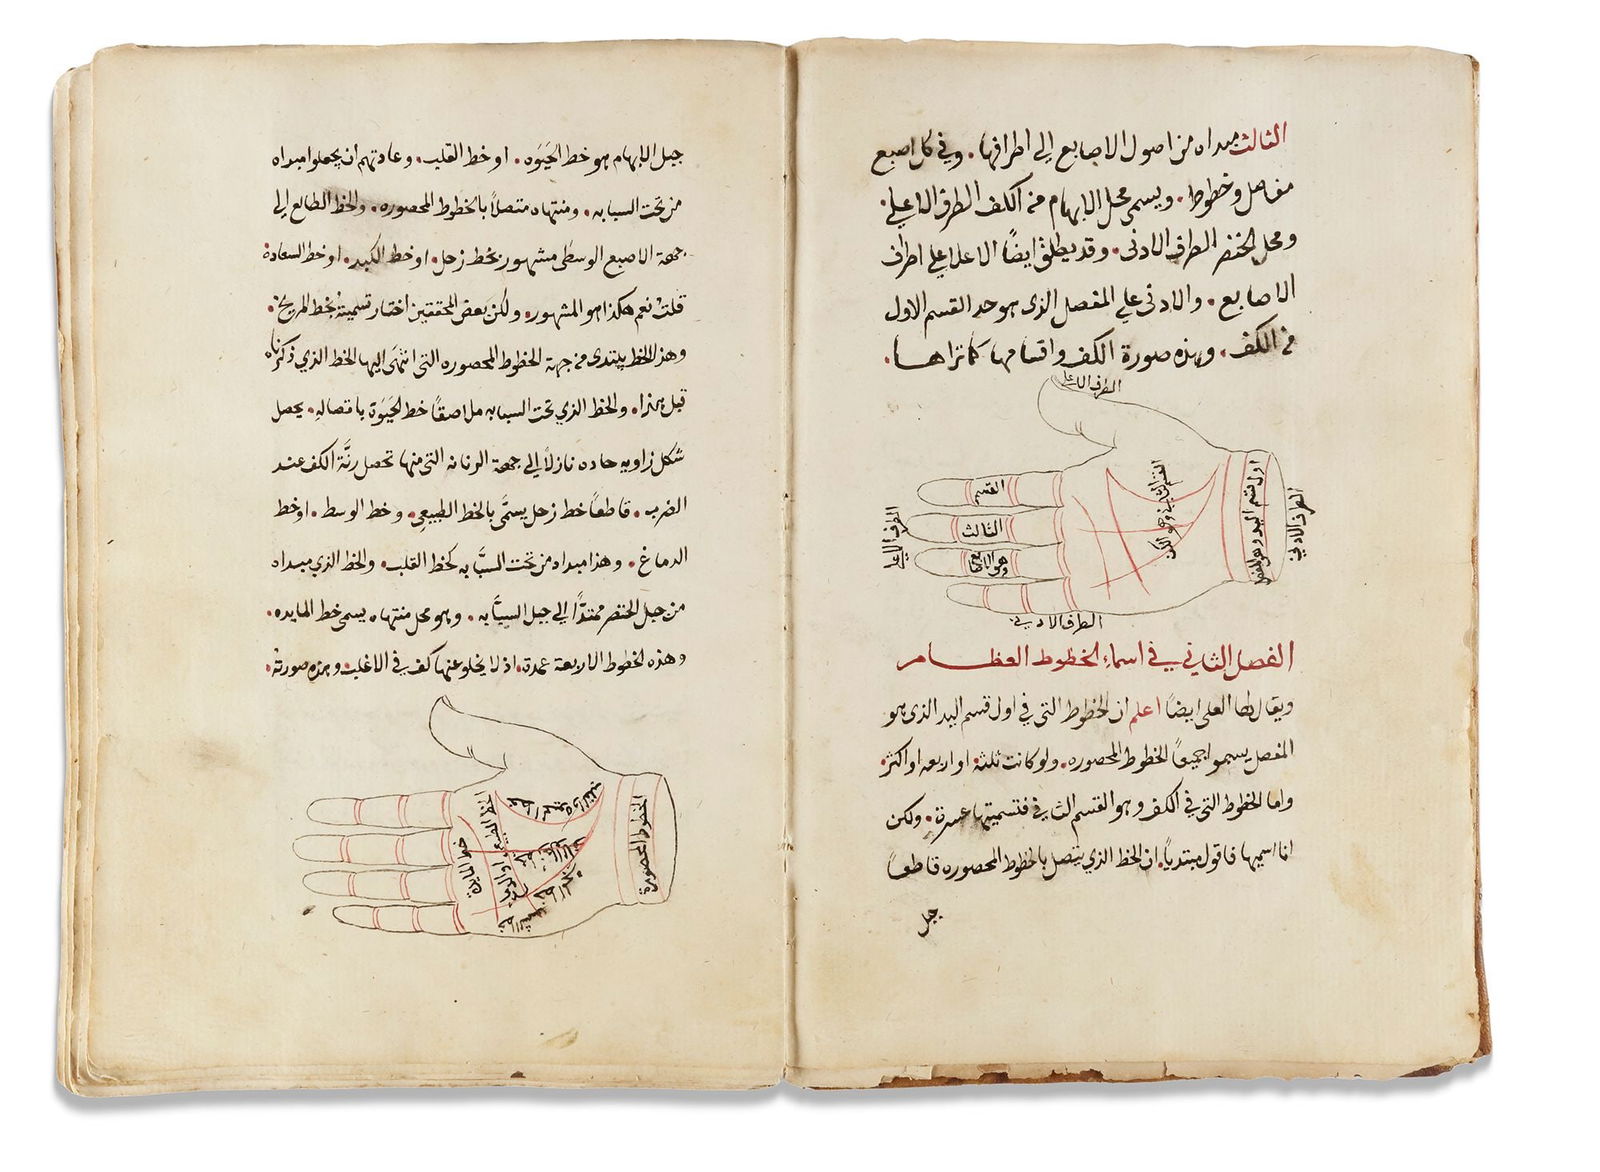 الثالث مبداه من اصول الاصابع الى اطرافها. وفي كل اصبع
مفاصل وخطوط. ويسمى محل الابهام من الكف الطرف الاعلى.
ومحل الخنصر الطرف الادنى. وقد يطلق ايضًا الاعلا على اطراف
الاصابع. والادنى على المفصل الذى هو حد القسم الاول
من الكف. وهذه صورة الكف واقسامها كما تراها.
الطرف الاعلى
القسم
الثالث
وهو الاصابع
الطرف الاعلى
القسم الثاني وهو الكف
اول قسم اليد وهو المفصل
الطرف الادنى
الطرف الادنى
الفصل الثاني في اسماء الخطوط العظام
ويقال لها العلى ايضًا اعلم ان الخطوط التى في اول قسم اليد الذى هو
المفصل يسموا جميعًا الخطوط المحصوره. ولو كانت ثلثة. او اربعه او اكثر.
واما الخطوط التى في الكف وهو القسم الثاني فتسميتها عسرة. ولكن
انا اسميها فاقول مبتديا. ان الخط الذي يتصل بالخطوط المحصوره قاطعًا
جبل
جبل الابهام هو خط الحيوه. او خط القلب. وعادتهم ان يجعلوا مبداه
من تحت السبابه. ومنتهاه متصلاً بالخطوط المحصوره. والخط الطالع الى
جهة الاصبع الوسطى مشهور بخط زحل. او خط الكبد. او خط السعادة
قلت نعم هكذا هو المشهور. ولكن بعض المحققين اختار تسميته بخط المريخ.
وهذا الخط يبتدى من جهة الخطوط المحصوره التى انتهى اليها الخط الذي ذكرناه
قبل هذا. والخط الذي تحت السبابه ملاصقًا خط الحيوة باتصاله. يحصل
شكل زاويه حاده نازلاً الى جهة الرنانه التى منها تحصل رنَّة الكف عند
الضرب. قاطعًا خط زحل يسمَّى بالخط الطبيعى. وخط الوسط. او خط
الدماغ. وهذا مبداه من تحت السبَّابه كخط القلب. والخط الذي مبداه
من جبل الخنصر ممتدًّا الى جبل السبَّابه. وهو محل منتهاه. يسمى خط المايده.
وهذه الخطوط الاربعة عمدة. اذ لا يخلو عنها كف في الاغلب. وهذه صورته.
خط المايدة
الخط الطبيعي او الدماغ
خط الحيوة او القلب
الخطوط المحصورة